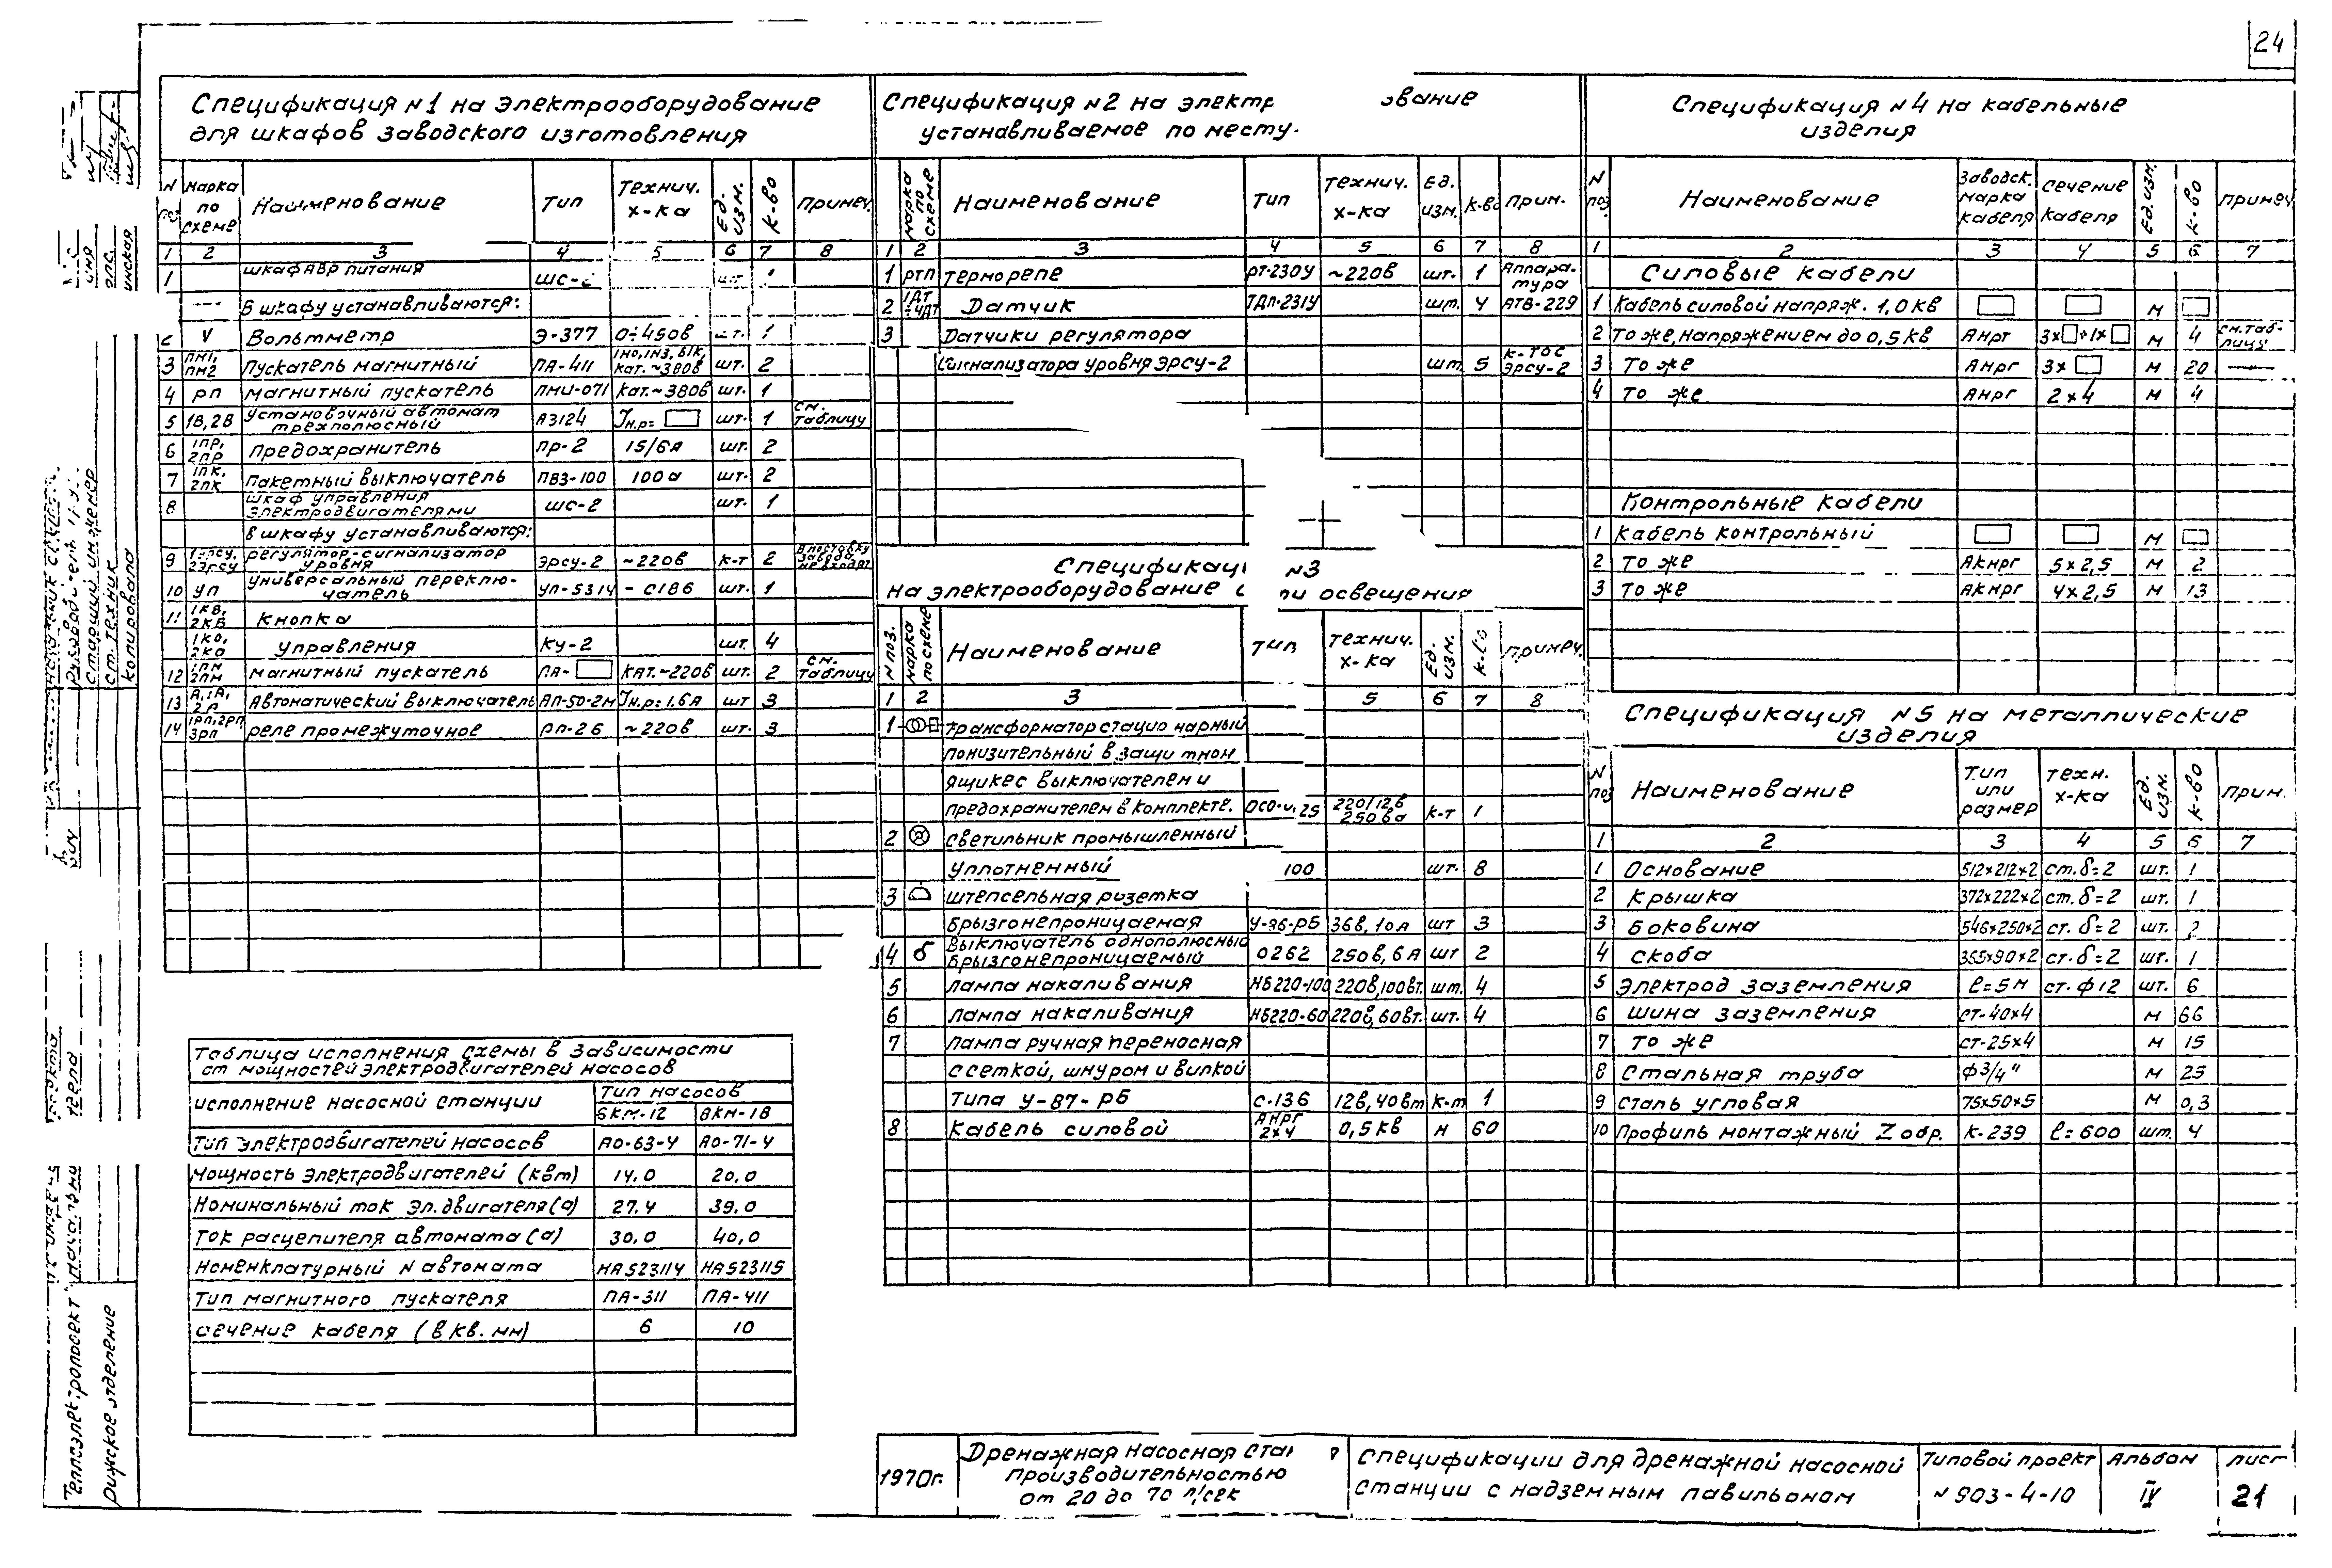 24
Спецификация №1 на электрооборудование
для шкафов заводского изготовления
N поз. марка по схеме Наименование Тип Технич. х-ка Ед. изм. К-во Примеч.
1 2 3 4 5 6 7 8
1 шкаф АВР питания ШС-
В шкафу устанавливаются:
V Вольтметр Э-377 0÷450в шт. 1
3 ПМ1, ПМ2 Пускатель магнитный ПА-411 1НО,1НЗ,61К, кат.~380в шт. 2
4 РП магнитный пускатель ПМИ-071 кат.~380в шт. 1
5 1В,2В Установочный автомат трехполюсный А3124 Jн.р= шт. 1 см. таблицу
6 1ПР, 2ПР Предохранитель Пр-2 15/6А шт. 2
7 1ПК, 2ПК Пакетный выключатель ПВ3-100 100а шт. 2
8 шкаф управления электродвигателями ШС-2 шт. 1
В шкафу устанавливаются:
9 1ЭРСУ, 2ЭРСУ регулятор-сигнализатор уровня ЭРСУ-2 ~220в к-т 2 В поставку завода не входят
10 УП Универсальный переключатель УП-5314 - С186 шт. 1
11 1КВ, 2КВ Кнопка
1КО, 2КО управления КУ-2 шт. 4
12 1ПМ 2ПМ магнитный пускатель ПА- КАТ.~220в шт. 2 см. таблицу
13 А,1А, 2А Автоматический выключатель АП-50-2М Jн.р=1.6А шт 3
14 1РП,2РП 3РП реле промежуточное РП-26 ~220в шт. 3
Таблица исполнения схемы в зависимости
от мощностей электродвигателей насосов
исполнение насосной станции Тип насосов
6КМ-12 8КМ-18
Тип электродвигателей насосов АО-63-4 АО-71-4
мощность электродвигателей (квт) 14.0 20,0
Номинальный ток эл.двигателя (а) 27.4 39.0
ток расцепителя автомата (а) 30.0 40,0
Номенклатурный N автомата НА523114 НА523115
Тип магнитного пускателя ПА-311 ПА-411
сечение кабеля (в кв. мм) 6 10
Спецификация №2 на электр вание
устанавливаемое по месту.
марка по схеме Наименование Тип Технич. х-ка Ед. изм. к-во прим.
1 2 3 4 5 6 7 8
1 РТП термореле РТ-230У ~220в шт. 1 Аппаратура
2 1ДТ ÷4ДТ Датчик ТДП-231У шт. 4 АТВ-229
3 Датчики регулятора
Сигнализатора уровня ЭРСУ-2 шт 5 к-тос ЭРСУ-2
Спецификац №3
на электрооборудование ли освещения
N поз. марка по схеме Наименование Тип Технич. х-ка Ед. изм. Примеч.
1 2 3 5 6 7 8
1 трансформатор стационарный
понизительный в защитном
ящике с выключателем и
предохранителем в комплекте. ОСО- 220/12в 250ва к-т 1
2 светильник промышленный
уплотненный 100 шт. 8
3 штепсельная розетка
брызгонепроницаемая У-86-РБ 36в, 10а шт 3
4 б выключатель однополюсный брызгонепроницаемый 0262 250в, 6А шт 2
5 лампа накаливания НБ220-100 220в,100вт. шт. 4
6 лампа накаливания НБ220-60 220в,60вт. шт. 4
7 лампа ручная переносная
с сеткой, шнуром и вилкой
типа У-87-РБ С-136 12в,40вт к-т 1
8 кабель силовой АНРГ 2х4 0,5кв м 60
Спецификация №4 на кабельные
изделия
N поз. Наименование Заводск. марка кабеля Сечение кабеля Ед. изм. К-во примеч
1 2 3 4 5 6 7
Силовые кабели
1 Кабель силовой напряж. 1,0 кв м
2 То же, напряжением до 0,5 кв АНРГ 3х +1х м 4 см. таблицу
3 То же АНРГ 3х м 20
4 То же АНРГ 2х4 м 4
Контрольные кабели
1 Кабель контрольный м
2 То же АКНРГ 5х2,5 м 2
3 То же АКНРГ 4х2,5 м 13
Спецификация №5 на металлические
изделия
N поз Наименование Тип или размер техн. х-ка Ед. изм. К-во прим.
1 2 3 4 5 6 7
1 Основание 512х212х2 ст.δ=2 шт. 1
2 Крышка 372х222х2 ст.δ=2 шт. 1
3 Боковина 546х250х2 ст. δ=2 шт. 2
4 Скоба 365х90х2 ст.δ=2 шт. 1
5 Электрод заземления ℓ=5м ст. ф12 шт. 6
6 шина заземления ст-40х4 м 66
7 То же ст-25х4 м 15
8 Стальная труба ф3/4" м 25
9 Сталь угловая 75х50х5 м 0,3
10 Профиль монтажный Z обр. К-239 ℓ=600 шт. 4
1970г.
Дренажная насосная стан
производительностью
от 20 до 70 л/сек
Спецификации для дренажной насосной
станции с надземным павильоном
Типовой проект
N 903-4-10
Альбом
IV
лист
21
Теплоэлектропроект
Рижское отделение
старший инженер
ст. техник
копировала